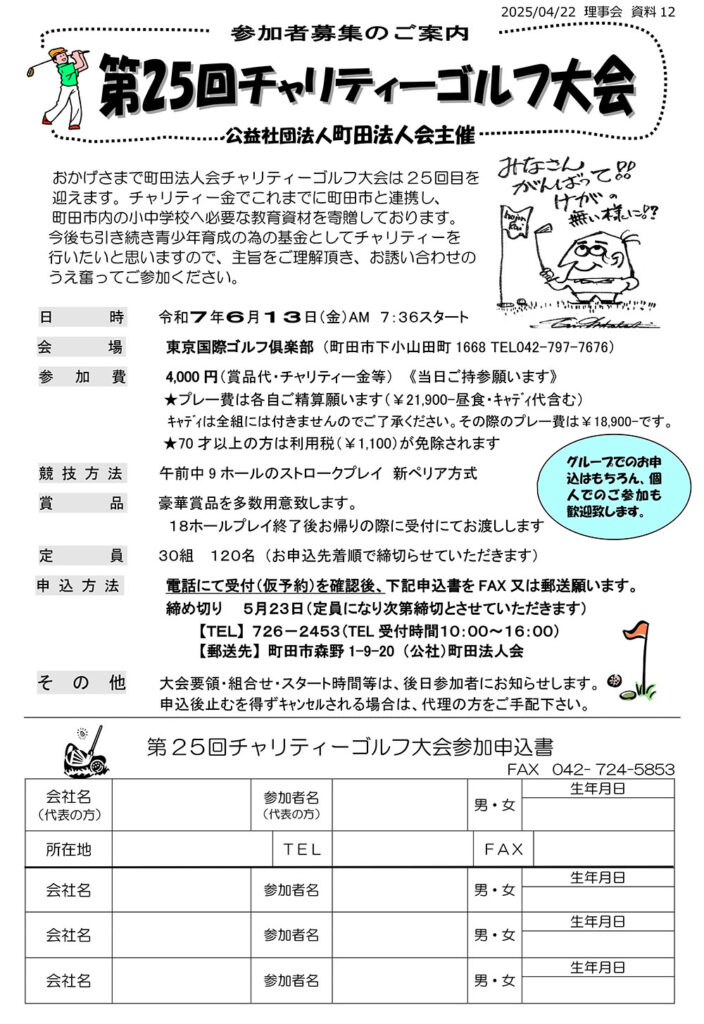 2025/04/22 理事会 資料12
参加者募集のご案内
第25回チャリティーゴルフ大会
公益社団法人町田法人会主催
おかげさまで町田法人会チャリティーゴルフ大会は25回目を
迎えます。チャリティー金でこれまでに町田市と連携し、
町田市内の小中学校へ必要な教育資材を寄贈しております。
今後も引き続き青少年育成の為の基金としてチャリティーを
行いたいと思いますので、主旨をご理解頂き、お誘い合わせの
うえ奮ってご参加ください。
みなさん
がんばって!!
けがの
無い様に!?
日時 令和7年6月13日(金)AM 7:36スタート
会場 東京国際ゴルフ倶楽部 (町田市下小山田町1668 TEL042-797-7676)
参加費 4,000円(賞品代・チャリティー金等) 《当日ご持参願います》
★プレー費は各自ご精算願います(¥21,900-昼食・キャディ代含む)
キャディは全組には付きませんのでご了承ください。その際のプレー費は¥18,900-です。
★70才以上の方は利用税(¥1,100)が免除されます
競技方法 午前中9ホールのストロークプレイ 新ペリア方式
賞品 豪華賞品を多数用意致します。
18ホールプレイ終了後お帰りの際に受付にてお渡しします
グループでのお申
込はもちろん、個
人でのご参加も
歓迎致します。
定員 30組 120名 (お申込先着順で締切らせていただきます)
申込方法 電話にて受付(仮予約)を確認後、下記申込書をFAX又は郵送願います。
締め切り 5月23日(定員になり次第締切とさせていただきます)
【TEL】726-2453(TEL受付時間10:00~16:00)
【郵送先】町田市森野1-9-20 (公社)町田法人会
その他 大会要領・組合せ・スタート時間等は、後日参加者にお知らせします。
申込後止むを得ずキャンセルされる場合は、代理の方をご手配下さい。
第25回チャリティーゴルフ大会参加申込書
FAX 042-724-5853
会社名 (代表の方) 参加者名 (代表の方) 男・女 生年月日
所在地 TEL FAX
会社名 参加者名 男・女 生年月日
会社名 参加者名 男・女 生年月日
会社名 参加者名 男・女 生年月日